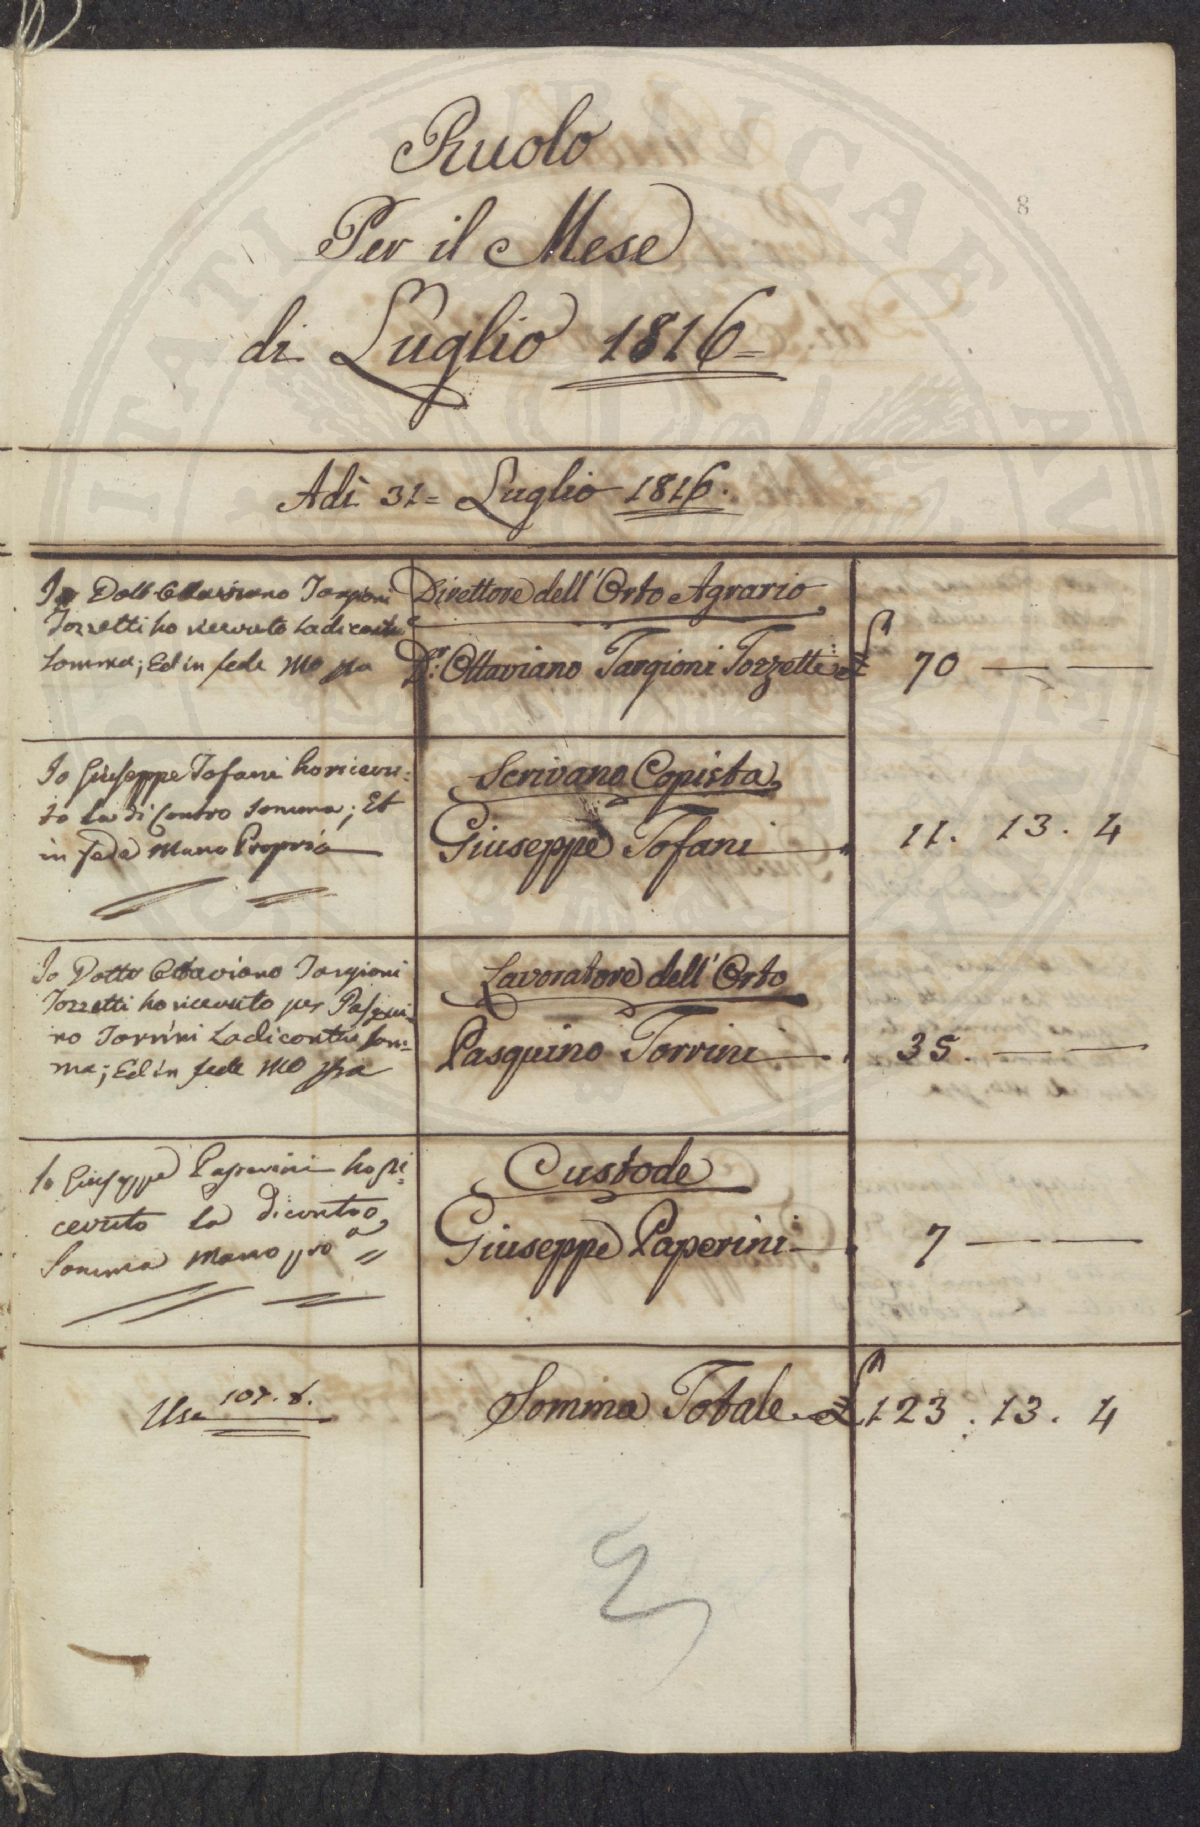 8
Ruolo
Per il Mese
di Luglio 1816=
Adì 31= Luglio 1816.
Io Dott Ottaviano Targioni
Tozzetti ho ricevuto la di contro
Somma; Ed in fede Mo ppa
Direttore dell'Orto Agrario
Dr. Ottaviano Targioni Tozzetti £ 70 — —
Io Giuseppe Tofani ho ricevu-
to la di Contro Somma; Et
in fede Mano Propria
Scrivano Copista
Giuseppe Tofani 11. 13. 4
Io Dotto Ottaviano Targioni
Tozzetti ho ricevuto per Pasqui
no Torrini la di contro Som-
ma; Ed in fede Mo ppa
Lavoratore dell'Orto
Pasquino Torrini 35. — —
Io Giuseppe Paperini ho ri
cevuto la di contro
Somma Mano pro a
Custode
Giuseppe Paperini 7 — —
107. 8.
Somma Totale £ 123. 13. 4